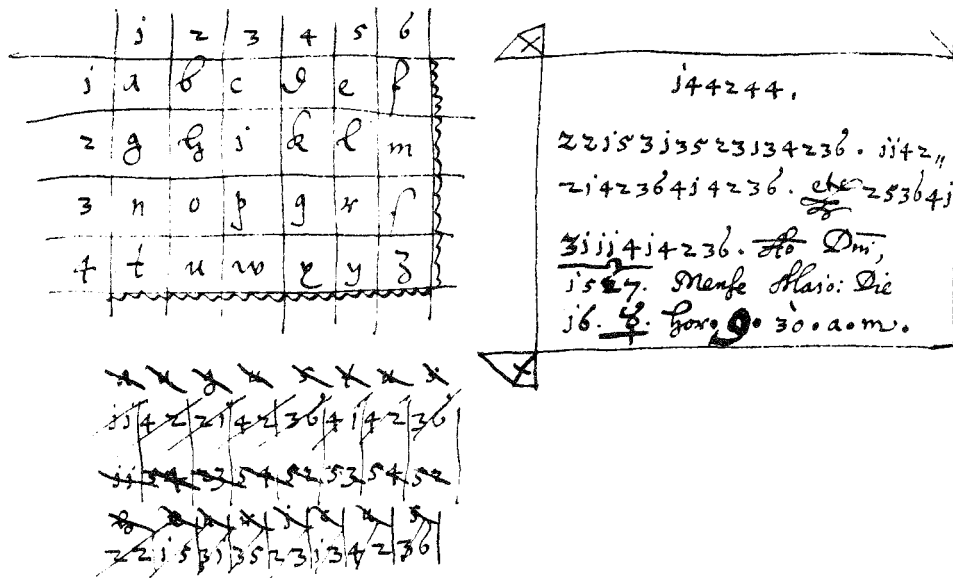 j 2 3 4 5 6
j a b c d e f
2 g h j k l m
3 n o p q r ſ
4 t u w x y z
j44244.
22j53j3523j34236. jj42,,
2j42364j4236. etc 25364j
3jjj4j4236. Ao Dni,
j527. Menſe Maio: Die
j6. ☿. hor. 9. 30. a. m.
jj 42 2j 42 36 4j 42 36
22 j5 3j 35 23 j3 42 36